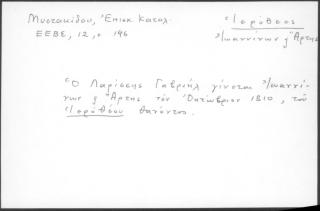 Μυστακίδου, Ἐπισκ. Κατάλ.
ΕΕΒΣ, 12, σ 196
Ἱερόθεος
Ἰωαννίνων & Ἄρτης
Ὁ Παρίσης Γαβριήλ γίνεται Ἰωαννί-
νων & Ἄρτης τόν Ὀκτώβριον 1810, τοῦ
Ἱεροθέου θανόντος.